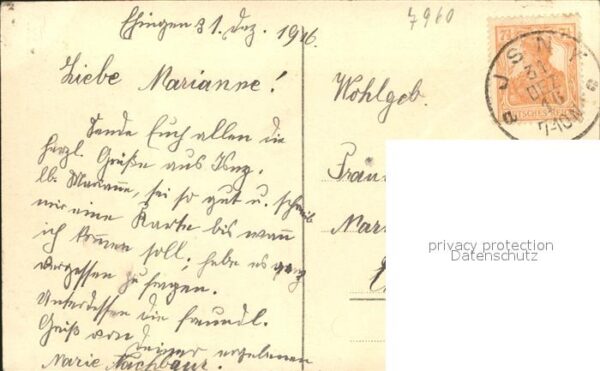 Ehingen 31. Dez. 1916.
7960
Liebe Marianne!
Sende Euch allen die
herzl. Grüße aus Isny.
lb. Marianne, sei so gut u. schreib
mir eine Karte bis wann
ich kommen soll, habe es ganz
vergessen zu fragen.
Unterdessen die freundl.
Grüß von Deiner ergebenen
Marie Nachbaur.
Wohlgeb.
Fräu
Mari
ISNY
31
DEZ
16
7-10N
privacy protection
Datenschutz